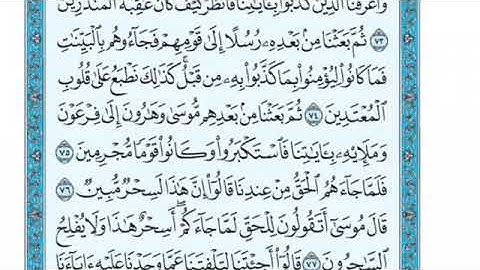 وَأَغْرَقْنَا الَّذِينَ كَذَّبُوا بِآيَاتِنَا فَانْظُرْ كَيْفَ كَانَ عَاقِبَةُ الْمُنْذَرِينَ
٧٣ ثُمَّ بَعَثْنَا مِنْ بَعْدِهِ رُسُلًا إِلَىٰ قَوْمِهِمْ فَجَاءُوهُمْ بِالْبَيِّنَاتِ
فَمَا كَانُوا لِيُؤْمِنُوا بِمَا كَذَّبُوا بِهِ مِنْ قَبْلُ ۚ كَذَٰلِكَ نَطْبَعُ عَلَىٰ قُلُوبِ
الْمُعْتَدِينَ ٧٤ ثُمَّ بَعَثْنَا مِنْ بَعْدِهِمْ مُوسَىٰ وَهَارُونَ إِلَىٰ فِرْعَوْنَ
وَمَلَإِيْهِ بِآيَاتِنَا فَاسْتَكْبَرُوا وَكَانُوا قَوْمًا مُجْرِمِينَ ٧٥
فَلَمَّا جَاءَهُمُ الْحَقُّ مِنْ عِنْدِنَا قَالُوا إِنَّ هَٰذَا لَسِحْرٌ مُبِينٌ ٧٦
قَالَ مُوسَىٰ أَتَقُولُونَ لِلْحَقِّ لَمَّا جَاءَكُمْ ۖ أَسِحْرٌ هَٰذَا وَلَا يُفْلِحُ
السَّاحِرُونَ ٧٧ قَالُوا أَجِئْتَنَا لِتَلْفِتَنَا عَمَّا وَجَدْنَا عَلَيْهِ آبَاءَنَا